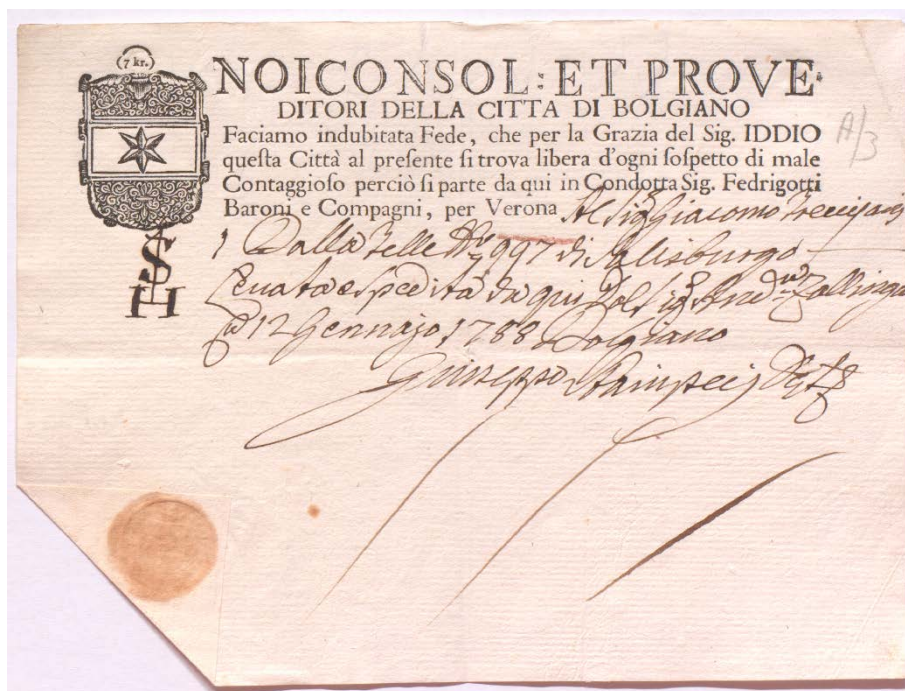 (7 kr.)
NOI CONSOL: ET PROVE-
DITORI DELLA CITTA DI BOLGIANO
Faciamo indubitata Fede, che per la Grazia del Sig. IDDIO
queſta Città al preſente ſi trova libera d'ogni ſoſpetto di male
Contaggioſo perciò ſi parte da qui in Condotta Sig. Fedrigotti
Baroni e Compagni, per Verona Al Sig Giacomo
1 Balla Pelle No 997 di Salisburgo
e spedita da qui Dol Sig And
12 Gennajo 1788 Bolgiano
Giuseppe
A/3
SH